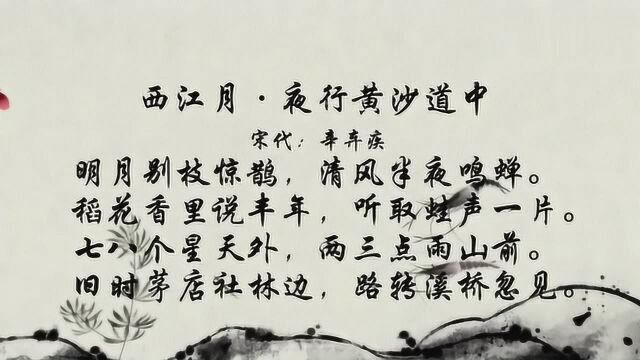 西江月·夜行黄沙道中
宋代：辛弃疾
明月别枝惊鹊，清风半夜鸣蝉。
稻花香里说丰年，听取蛙声一片。
七八个星天外，两三点雨山前。
旧时茅店社林边，路转溪桥忽见。